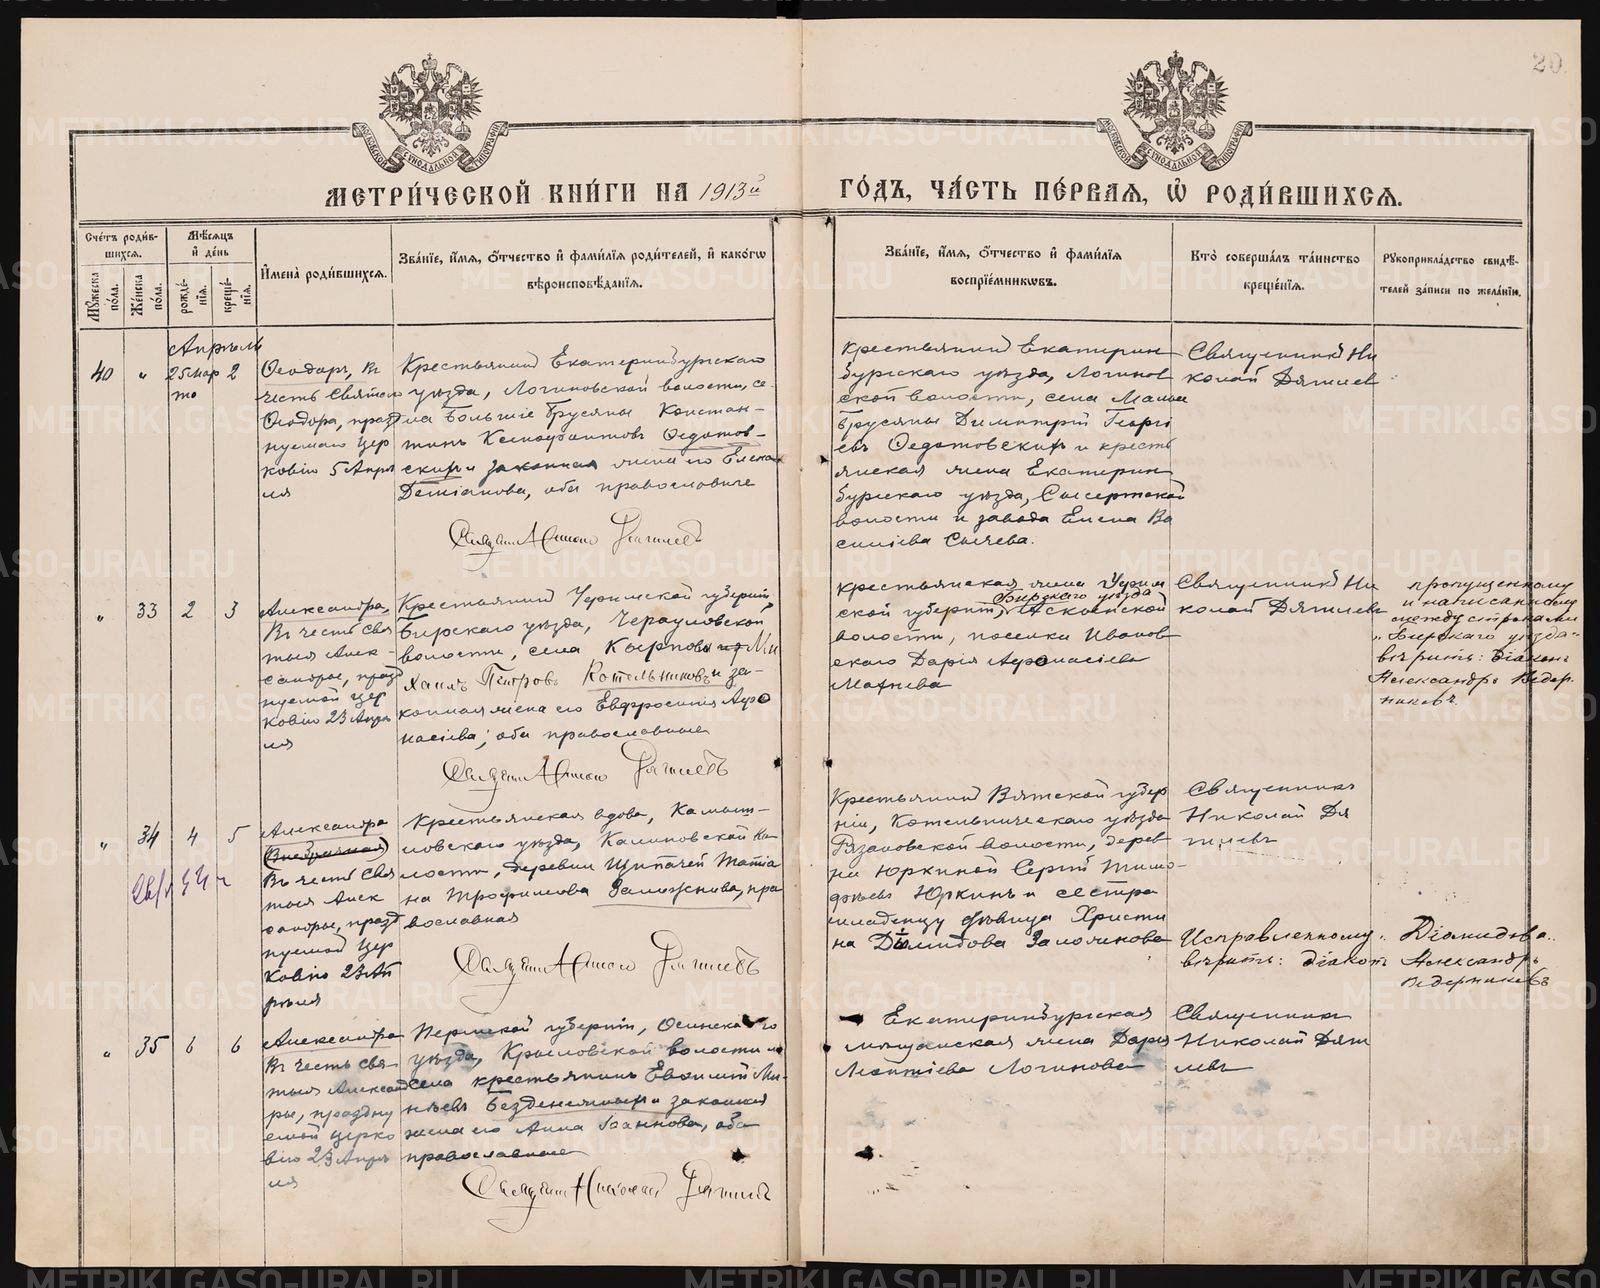 20
МЕТРИ́ЧЕСКОЙ КНИ́ГИ НА 1913й
ГО́ДЪ, ЧА́СТЬ ПЕ́РВАЯ, Ѿ РОДИ́ВШИХСЯ.
Счетъ роди́в-
шихся.
Му́жеска
по́ла.
Же́нска
по́ла.
Мѣсяцъ
и де́нь
рожде́-
нія.
креще́-
нія.
Имена̀ роди́вшихся.
Зва́нїе, и́мя, о́тчество и҆ фами́лїя роди́телей, и҆ како́гѡ
вѣроисповѣ́данїя.
Зва́нїе, и́мя, о́тчество и҆ фами́лїя
воспрїе́мникѡвъ.
Кто̀ соверша́лъ та́инство
креще́нїя.
Рукоприкла́дство свидѣ́-
телей за́писи по жела́нїю.
Апрѣль
40 " 25 мар 2
та
Ѳеодоръ, въ
честь Святого
Ѳеодора, празд
нуемаго цер
ковію 5 Апрѣ
ля
Крестьянинъ Екатеринбургскаго
уѣзда, Логиновской волости, се-
ла Большіе Брусяны Констан-
тинъ Ксенофонтовъ Ѳедотов-
скихъ и законная жена его Елена
Даміанова, оба православные
Священникъ Николай Дягилевъ
Крестьянинъ Екатерин
бургскаго уѣзда, Логинов
ской волости, села Малые
Брусяны Димитрій Георгі
евъ Ѳедотовскихъ и кресть
янская жена Екатерин
бургскаго уѣзда, Сысертской
волости и завода Елена Ва
силіева Сычева.
Священникъ Ни
колай Дягилев
" 33 2 3
Александра,
въ честь Свя
тыя Алек-
сандры, празд
нуемой цер
ковію 23 Апрѣ
ля
Крестьянинъ Уфимской губерніи,
Бирскаго уѣзда,
волости, села Ми
хаилъ Петровъ Котельниковъ и за-
конная жена его Евфросинія Аѳа
насіева, оба православные
Священникъ Николай Дягилевъ
Крестьянская жена Уфим
ской губерніи, Бирскаго уѣзда Аскынской
волости, поселка Иванов
скаго Дарія Аѳанасіева
Матнева
Священникъ Ни
колай Дягилевъ
Пропущенному
и написанному
между строками
"Бирскаго уѣзда"
вѣрить: Діаконъ
Александръ Ведер
никовъ.
" 34 4 5
Александра
(Внебрачная)
въ честь Свя
тыя Алек
сандры, празд
нуемой цер
ковію 23 Ап
рѣля
Крестьянская вдова, Камыш-
ловскаго уѣзда, Калиновской во
лости, деревни Щипачей Татіа
на Трофимова Заложнова, пра
вославная
Священникъ Николай Дягилевъ
Крестьянинъ Вятской губер
ніи, Котельническаго уѣзда
волости, дерев
ни Юркиной Сергій Тимо-
фѣевъ Юркинъ и сестра
младенцу дѣвица Христи
на Діомидова Заложнова
Священникъ
Николай Дя
гилевъ
Исправленному: Діомидова..
вѣрить: діаконъ Александръ
Ведерниковъ
" 35 6 6
Александра
въ честь свя-
тыя Александ
ры, праздну
емой церко
вію 23 Апрѣ
ля
Пермской губерніи, Осинскаго
уѣзда, Крыловской волости и
села крестьянинъ Евѳимій Ми-
нѣевъ Безденежныхъ и законная
жена его Анна Іоаннова, оба
православные
Священникъ Николай Дягилевъ
Екатеринбургская
мѣщанская жена Дарія
Леонтіева Логинова
Священникъ
Николай Дяги
левъ